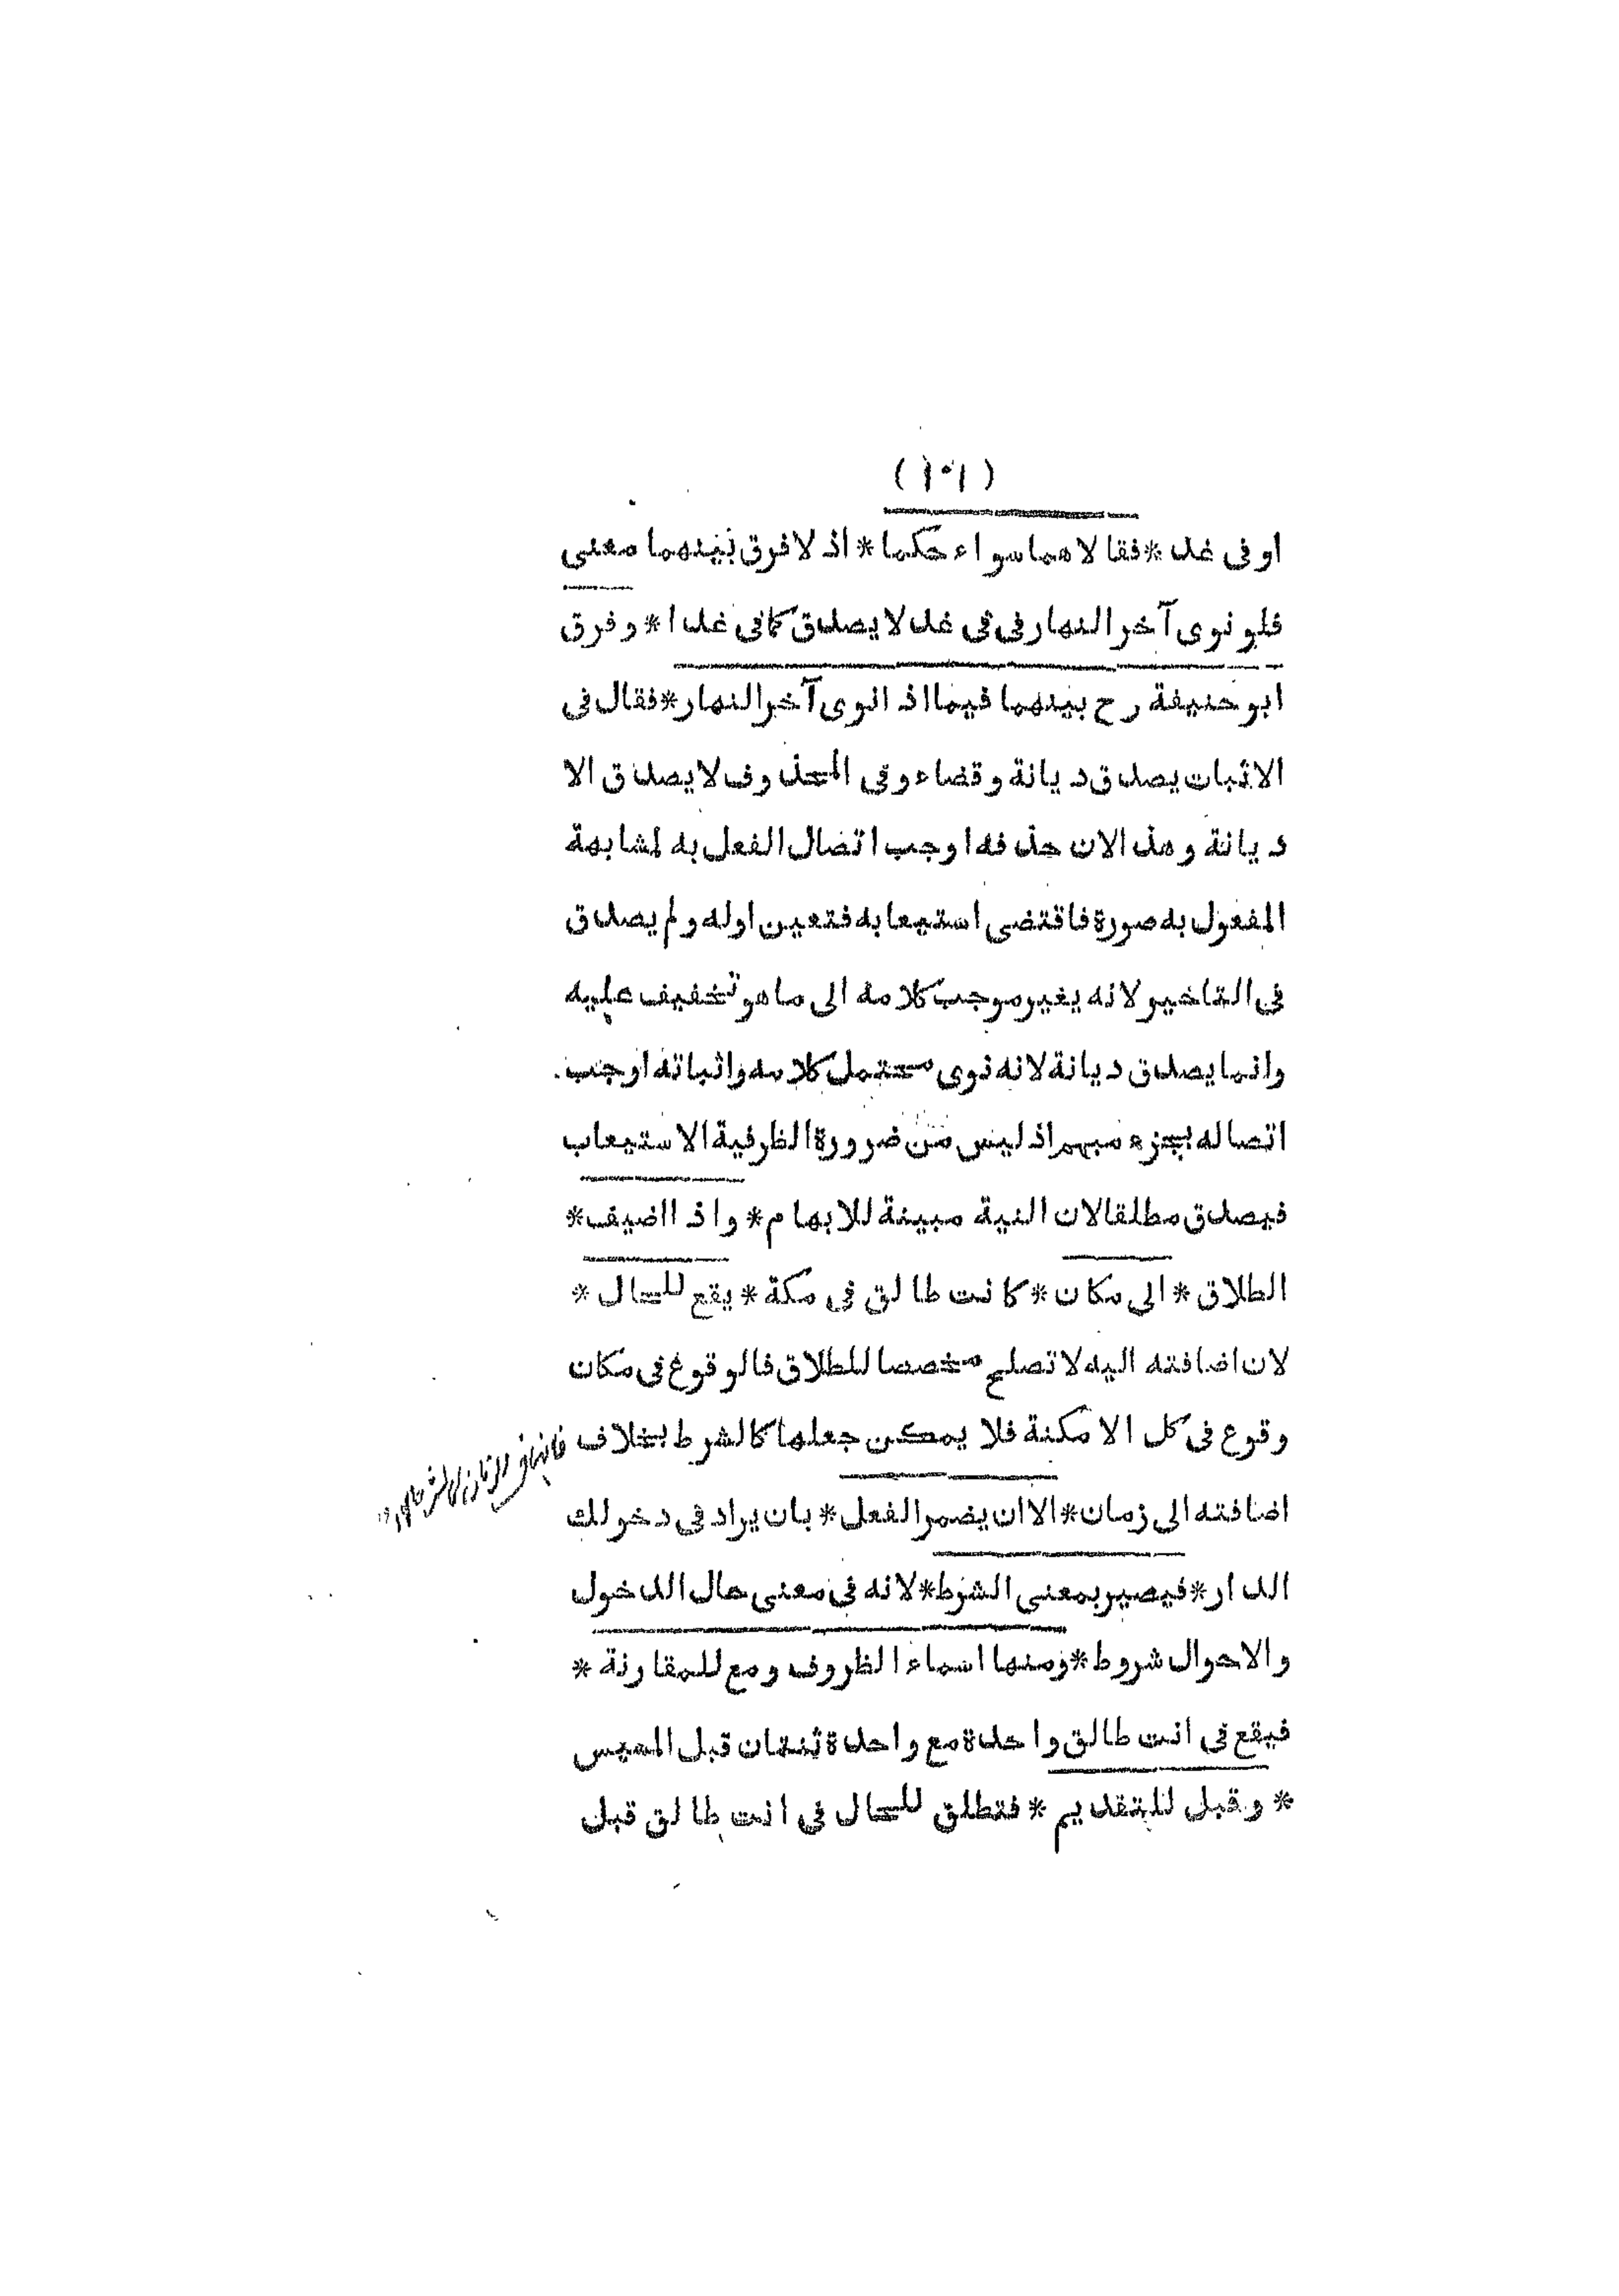 (١٠١)
او فى غد *فقا لاهما سواء حكما * اذ لا فرق بينهما معنى
فلو نوى آخر النهار فى فى غد لا يصدق كما فى غدا * وفرق
ابو حنيفة رح بينهما فيما اذا نوى آخر النهار*فقال فى
الاثبات يصدق ديانة وقضاء وفى المحذوف لا يصدق الا
ديانة وهذا لان حذفه اوجب اتصال الفعل به لمشابهة
المفعول به صورة فاقتضى استيعابه فتعين اوله ولم يصدق
فى التاخير لانه يغير موجب كلامه الى ما هو تخفيف عليه
وانما يصدق ديانة لانه نوى محتمل كلامه واثباته اوجب
اتصاله بجزء مبهم اذ ليس من ضرورة الظرفية الاستيعاب
فيصدق مطلقا لان النية مبينة للابهام * واذا اضيف *
الطلاق * الى مكان * كانت طالق فى مكة * يقع للحال *
لان اضافته اليه لا تصلح مخصصا للطلاق فالوقوع فى مكان
وقوع فى كل الامكنة فلا يمكن جعلها كالشرط بخلاف
اضافته الى زمان * الا ان يضمر الفعل * بان يراد فى دخولك
الدار * فيصير بمعنى الشرط * لانه فى معنى حال الدخول
والاحوال شروط * ومنها اسماء الظروف ومع للمقارنة *
فيقع فى انت طالق واحدة مع واحدة ثنتان قبل المسيس
* وقبل للتقديم * فتطلق للحال فى انت طالق قبل